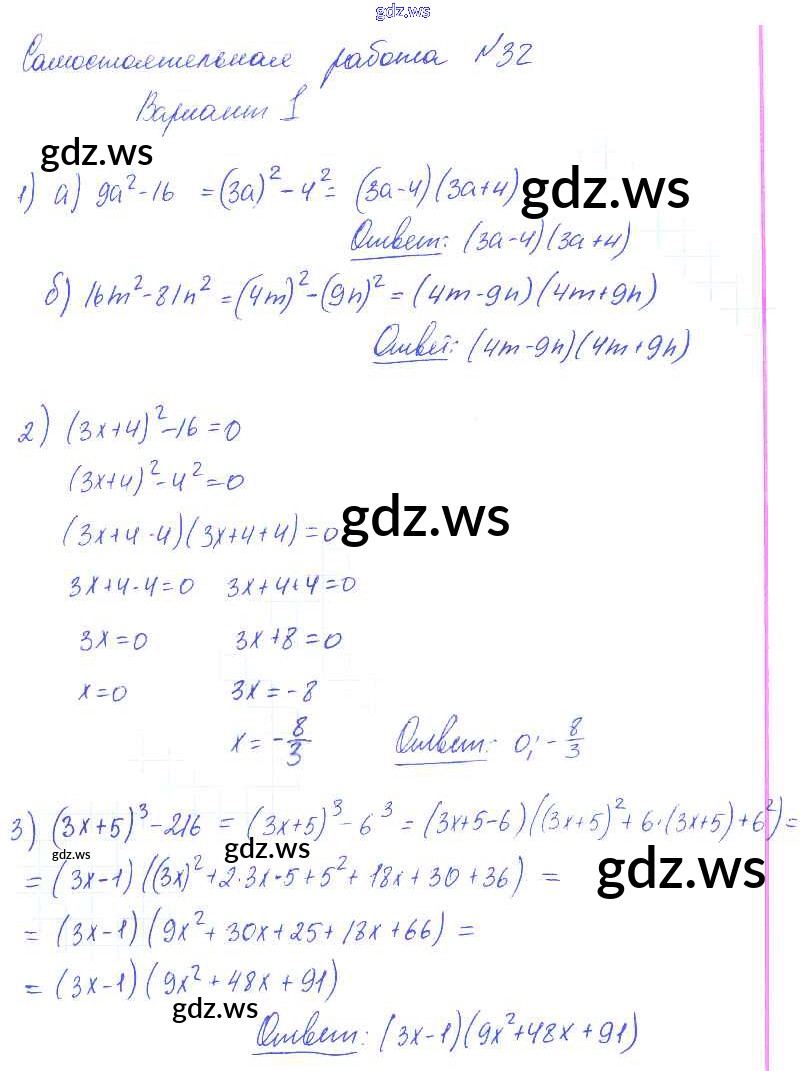 gdz.ws
Самостоятельная работа №32
Вариант 1
gdz.ws
1) а) 9a²-16 = (3a)² - 4² = (3a-4)(3a+4) gdz.ws
Ответ: (3a-4)(3a+4)
б) 16m²-81n² = (4m)²-(9n)² = (4m-9n)(4m+9n)
Ответ: (4m-9n)(4m+9n)
2) (3x+4)²-16=0
(3x+4)²-4²=0
(3x+4-4)(3x+4+4)=0 gdz.ws
3x+4-4=0 3x+4+4=0
3x=0 3x+8=0
x=0 3x=-8
x=-8/3 Ответ: 0; -8/3
3) (3x+5)³-216 = (3x+5)³-6³ = (3x+5-6)((3x+5)²+6·(3x+5)+6²)=
gdz.ws gdz.ws gdz.ws
= (3x-1)((3x)²+2·3x·5+5²+18x+30+36) =
= (3x-1)(9x²+30x+25+18x+66) =
= (3x-1)(9x²+48x+91)
gdz.ws
Ответ: (3x-1)(9x²+48x+91)